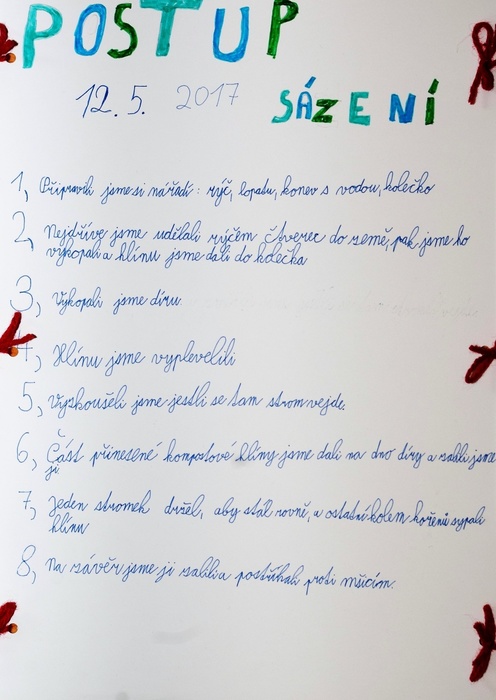 POSTUP
12. 5. 2017 SÁZENÍ
1, Připravili jsme si nářadí: rýč, lopatu, konev s vodou, kolečko
2, Nejdříve jsme udělali rýčem čtverec do země, pak jsme ho
vykopali a hlínu jsme dali do kolečka
3, Vykopali jsme díru
4, Hlínu jsme vyplevelili
5, Vyzkoušeli jsme jestli se tam strom vejde.
6, Část přinesené kompostové hlíny jsme dali na dno díry a zalili jsme
ji
7, Jeden stromek držel, aby stál rovně, a ostatní kolem kořenů sypali
hlínu
8, Na závěr jsme ji zalili a postříkali proti mšicím.